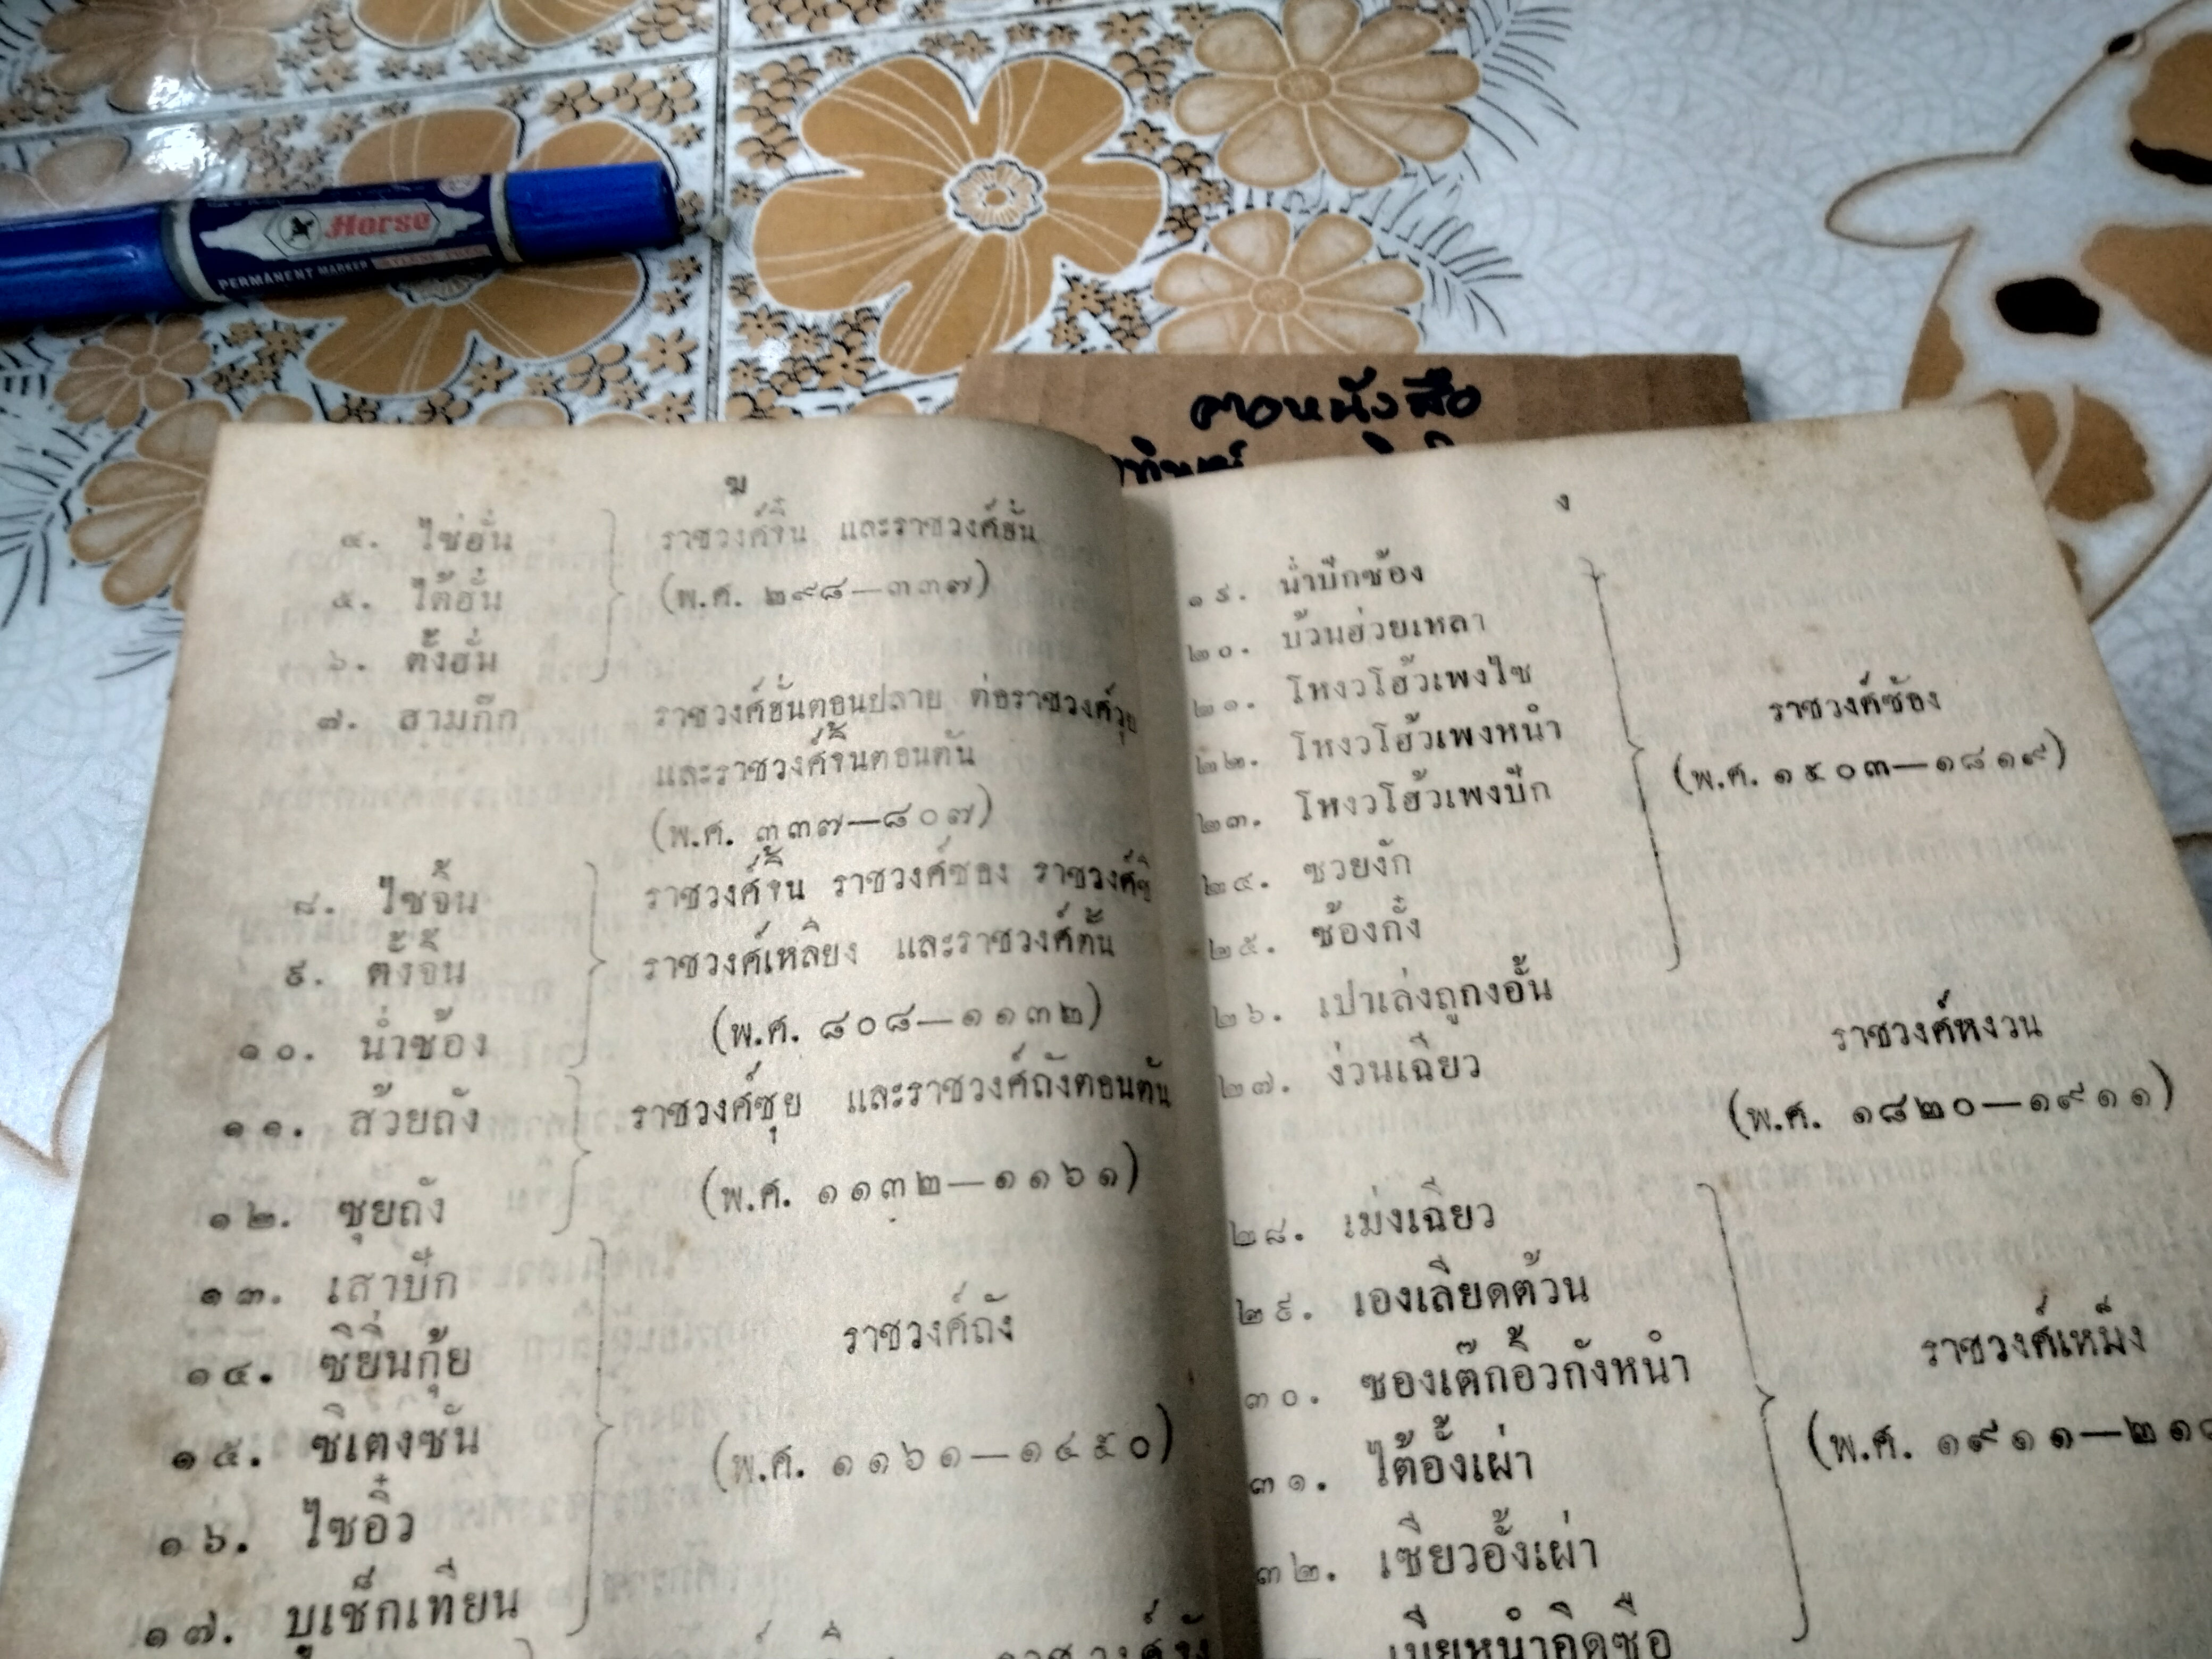 Horse
PERMANENT MARKER
ตาอหนังสือ
ฆ
๔. ไซ่ฮั่น ราชวงศ์จิ๋น และราชวงศ์ฮั่น
๕. ไต้ฮั่น (พ.ศ. ๒๙๘—๓๓๗)
๖. ตั้งฮั่น
๗. สามก๊ก ราชวงศ์ฮั่นตอนปลาย ต่อราชวงศ์วุย
และราชวงศ์จิ้นตอนต้น
(พ.ศ. ๓๓๗—๘๐๗)
๘. ไซจิ้น ราชวงศ์จิ้น ราชวงศ์ซอง ราชวงศ์ชี
๙. ตั้งจิ้น ราชวงศ์เหลียง และราชวงศ์ตั้น
๑๐. น่ำซ้อง (พ.ศ. ๘๐๘—๑๑๓๒)
๑๑. ส้วยถัง ราชวงศ์ซุย และราชวงศ์ถังตอนต้น
๑๒. ซุยถัง (พ.ศ. ๑๑๓๒—๑๑๖๑)
๑๓. เสาปัก
๑๔. ซิยิ่นกุ้ย ราชวงศ์ถัง
๑๕. ซิเตงซัน (พ.ศ. ๑๑๖๑—๑๔๕๐)
๑๖. ไซอิ๋ว
๑๗. บูเช็กเทียน
ง
๑๙. น่ำปักซ้อง
๒๐. บ้วนฮ่วยเหลา
๒๑. โหงวโฮ้วเพงไซ
๒๒. โหงวโฮ้วเพงหนำ ราชวงศ์ซ้อง
๒๓. โหงวโฮ้วเพงปัก (พ.ศ. ๑๕๐๓—๑๘๑๙)
๒๔. ซวยงัก
๒๕. ซ้องกั๋ง
๒๖. เปาเล่งถูกงอั้น
๒๗. ง่วนเฉียว ราชวงศ์หงวน
(พ.ศ. ๑๘๒๐—๑๙๑๑)
๒๘. เม่งเฉียว
๒๙. เองเลียดต้วน
๓๐. ซองเต๊กอิ้วกังหนำ ราชวงศ์เหม็ง
๓๑. ไต้อั้งเผ่า (พ.ศ. ๑๙๑๑—๒๑
๓๒. เซียวอั้งเผ่า
เนียหนำอิดซือ